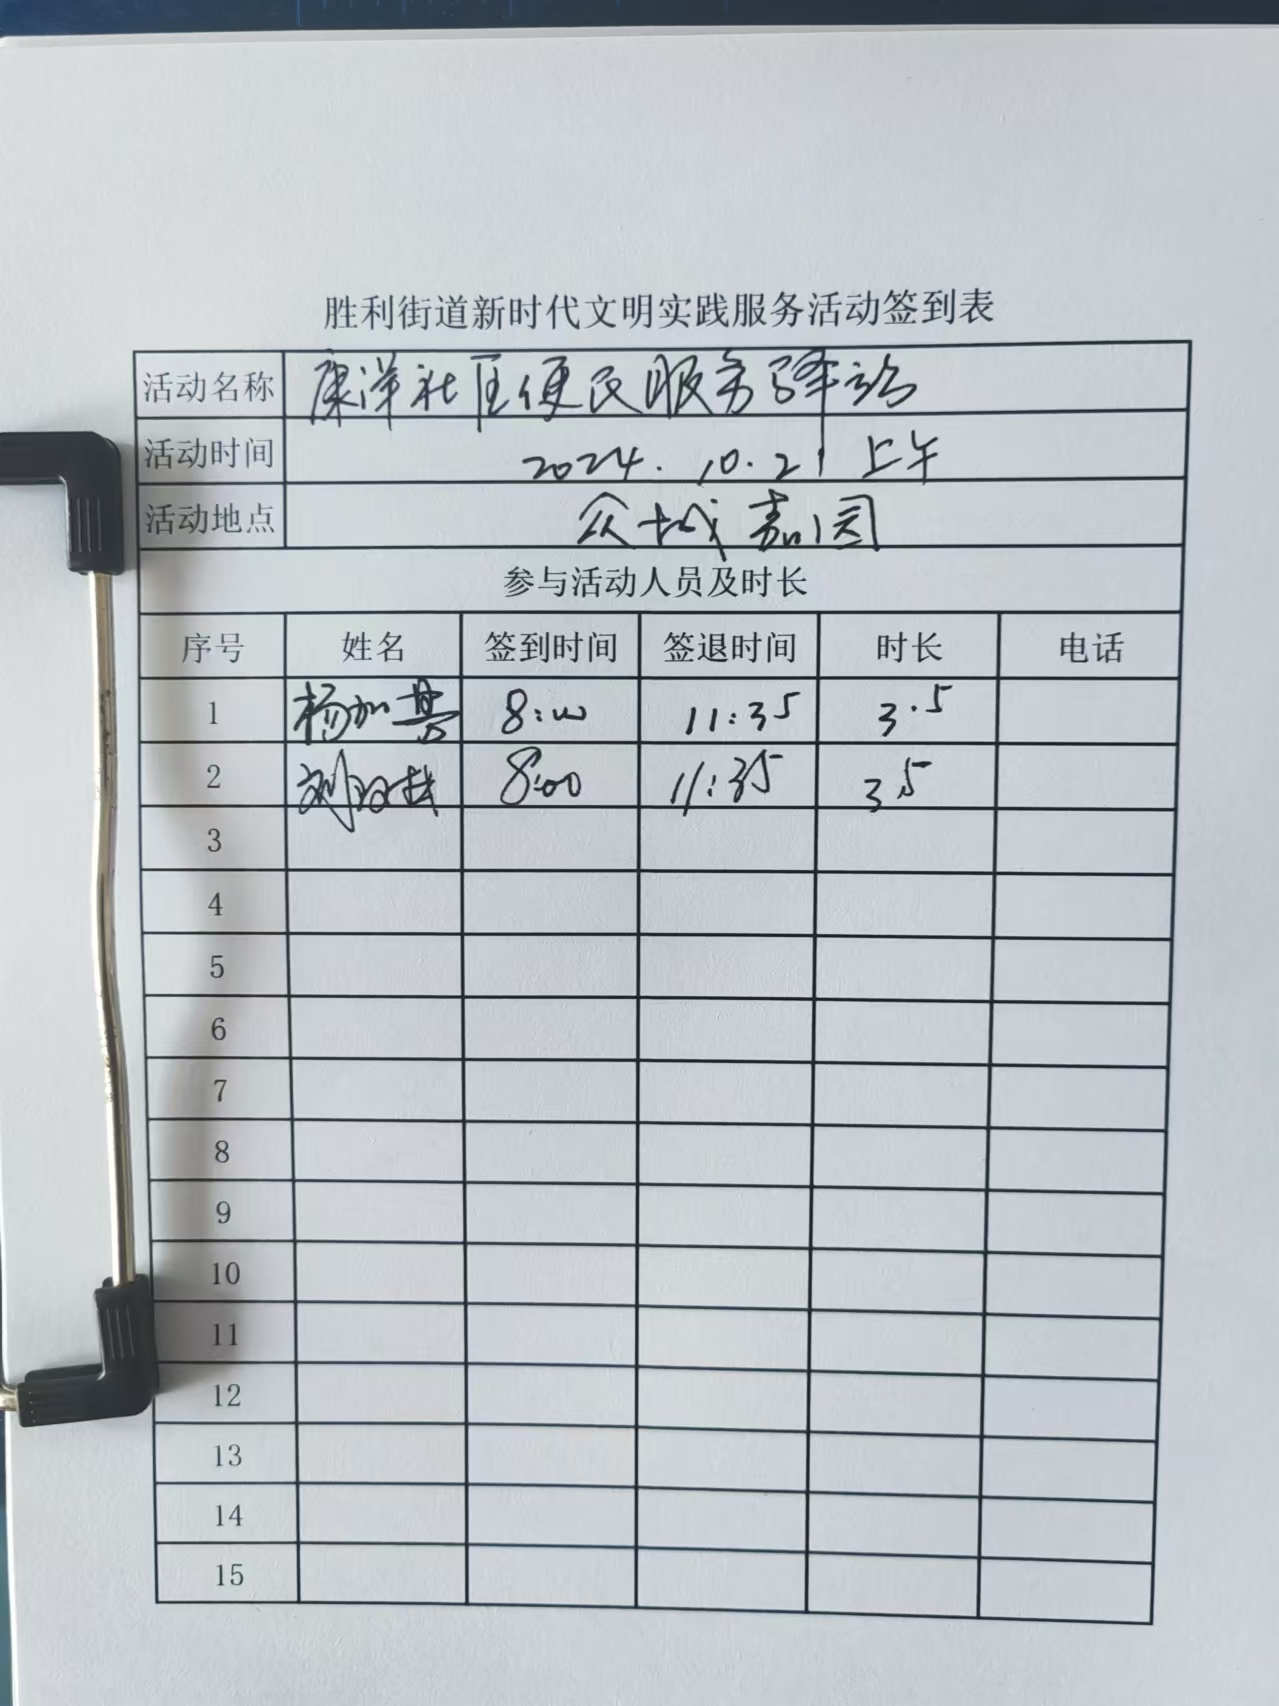 胜利街道新时代文明实践服务活动签到表
活动名称 康洋社区便民服务驿站
活动时间 2024.10.21 上午
活动地点 众城嘉园
参与活动人员及时长
序号 姓名 签到时间 签退时间 时长 电话
1 杨加 8:00 11:35 3.5
2 刘 8:00 11:35 3.5
3
4
5
6
7
8
9
10
11
12
13
14
15